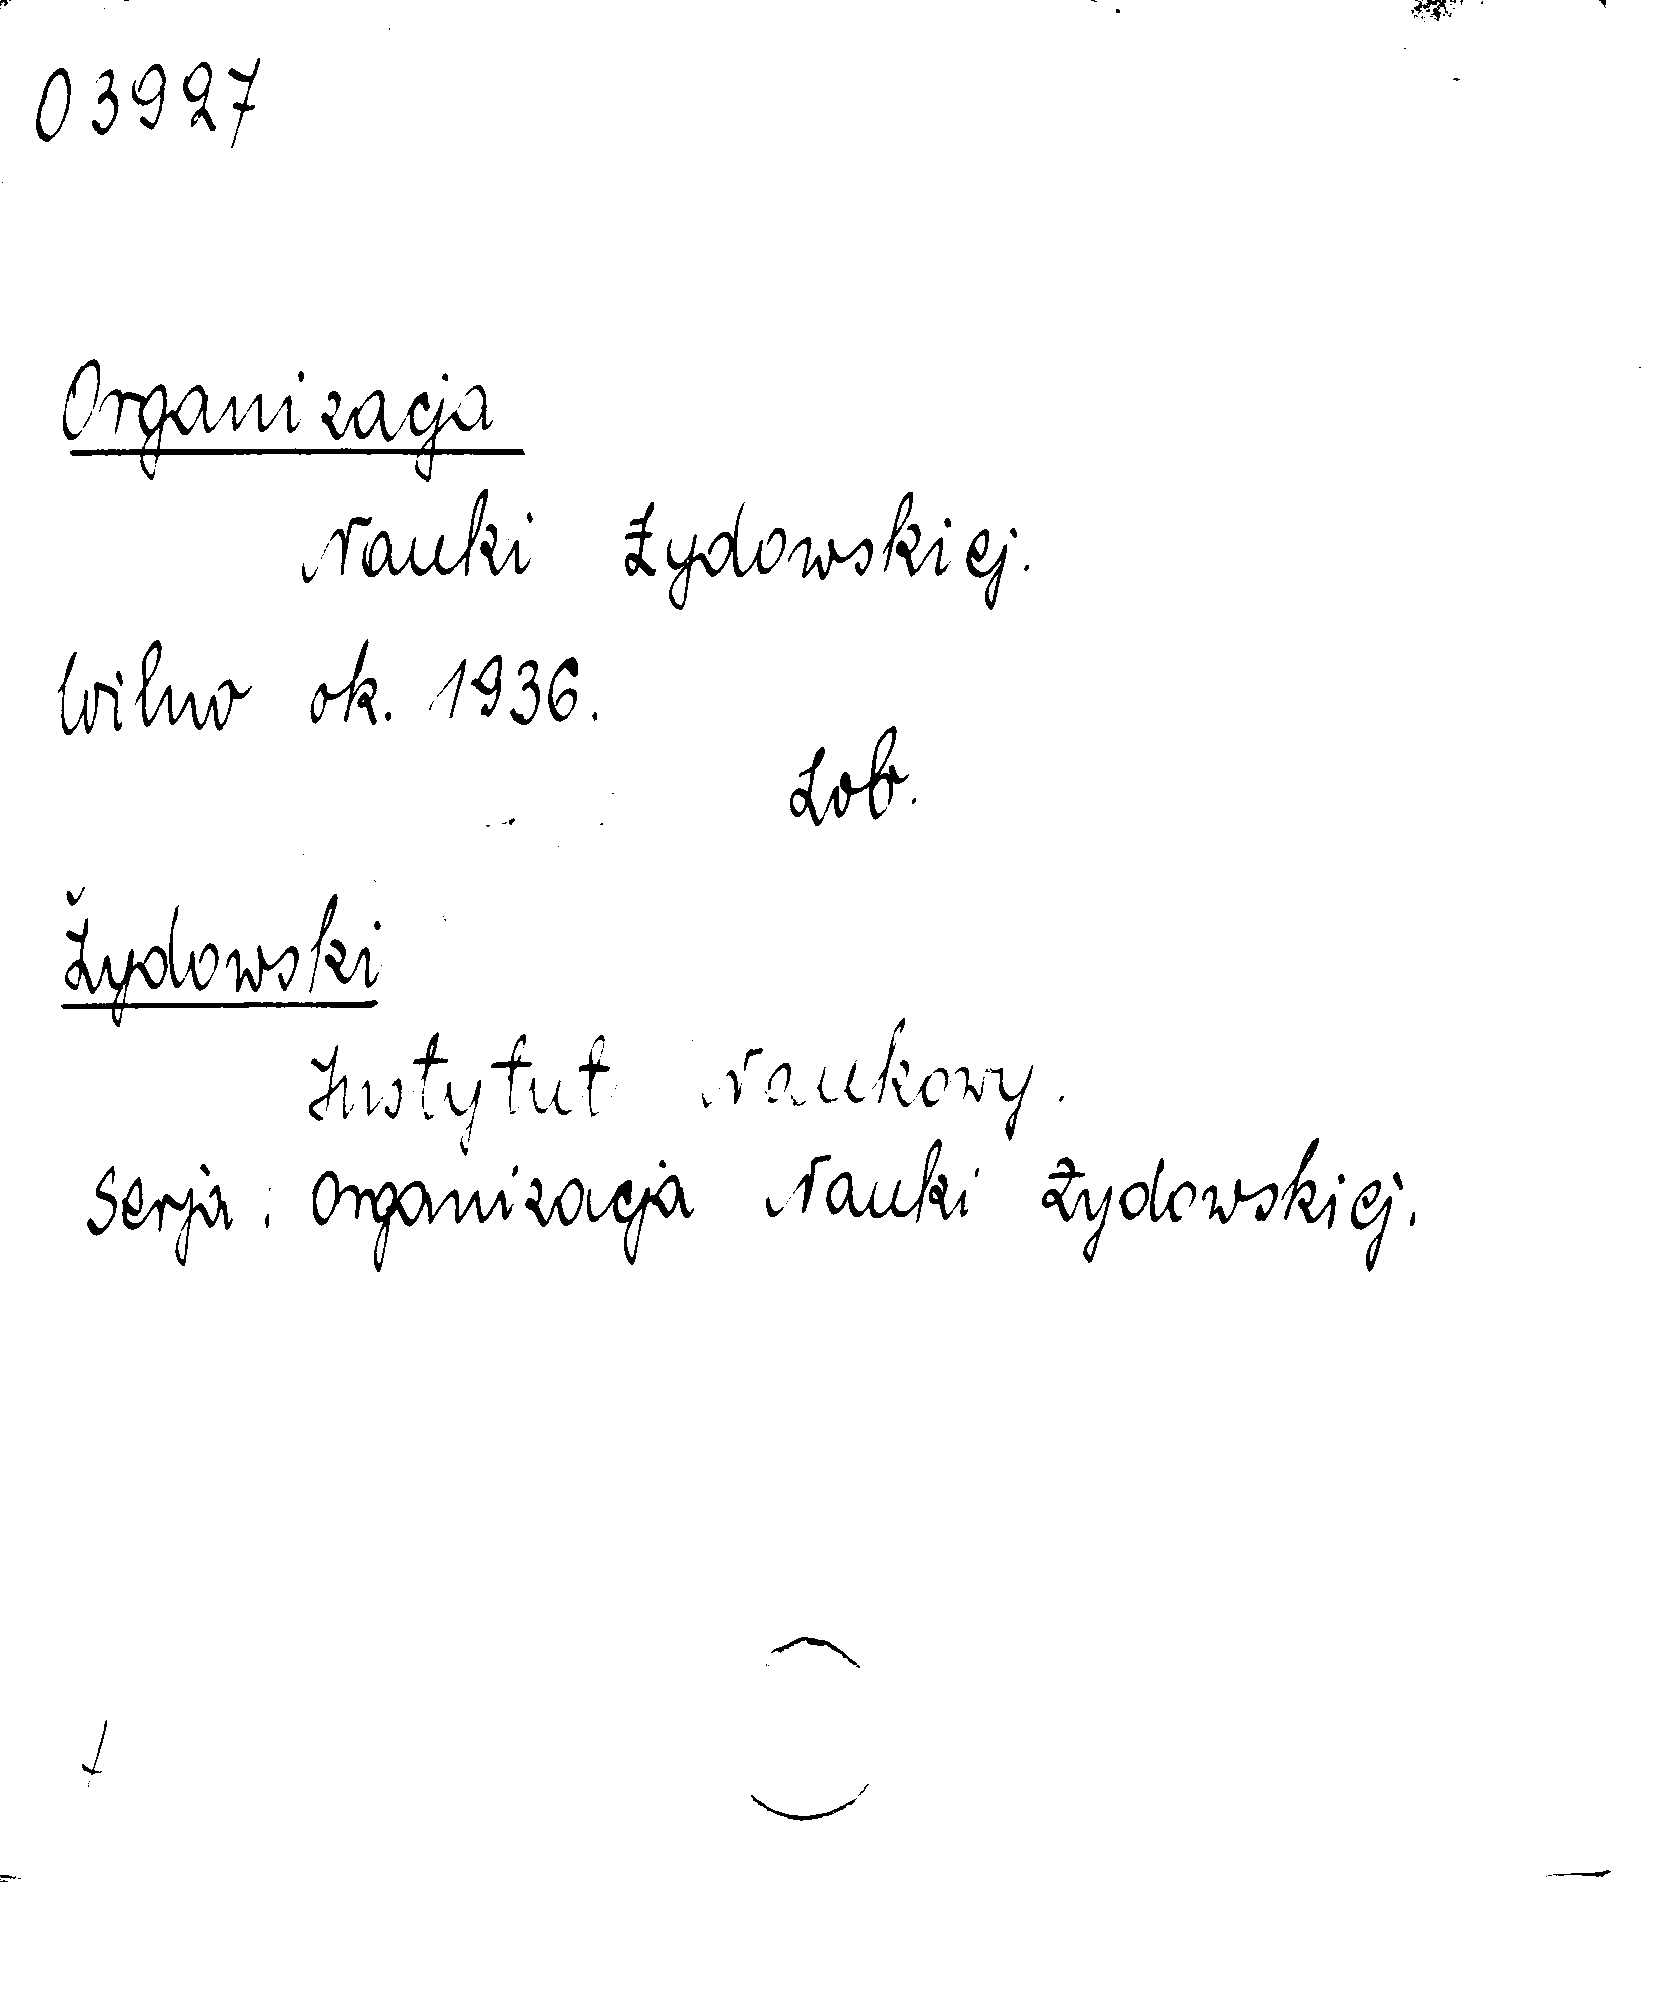 03927
Organizacja
Nauki Żydowskiej.
Wilno ok. 1936.
Zob.
Żydowski
Instytut Naukowy.
Serja: Organizacja Nauki Żydowskiej.